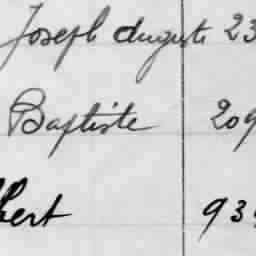 Joseph Auguste 23
Baptiste 209
bert 939